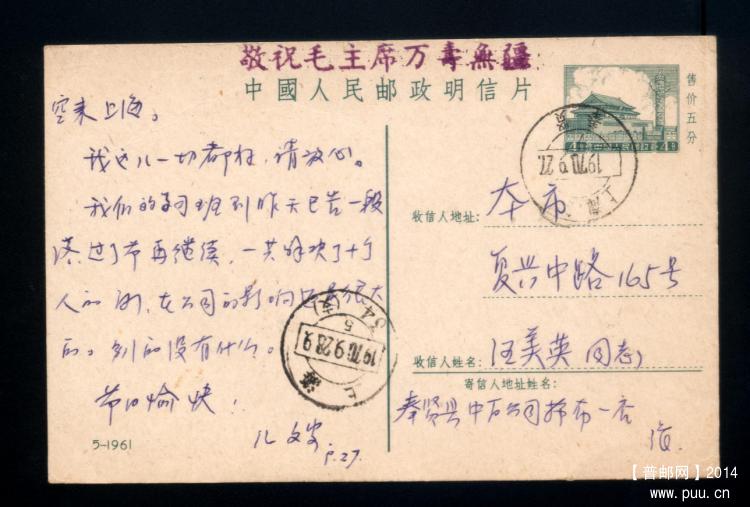 敬祝毛主席万寿無疆
中國人民邮政明信片
售价五分
上海。
我这儿一切都好,请放心。
我们的学习班到昨天已告一段
落,过了节再继续,一共解决了十个
人的
在公司的影响
很大
的。别的没有什么。
节日愉快!
儿
9.27.
5-1961
收信人地址:
本市
复兴中路165号
收信人姓名:
汪美英同志
寄信人地址姓名:
奉贤县中百公司棉布一店
上海
1970.9.27.
上海
1970.9.28.9
54(支)
5
【普邮网】2014
www.puu.cn